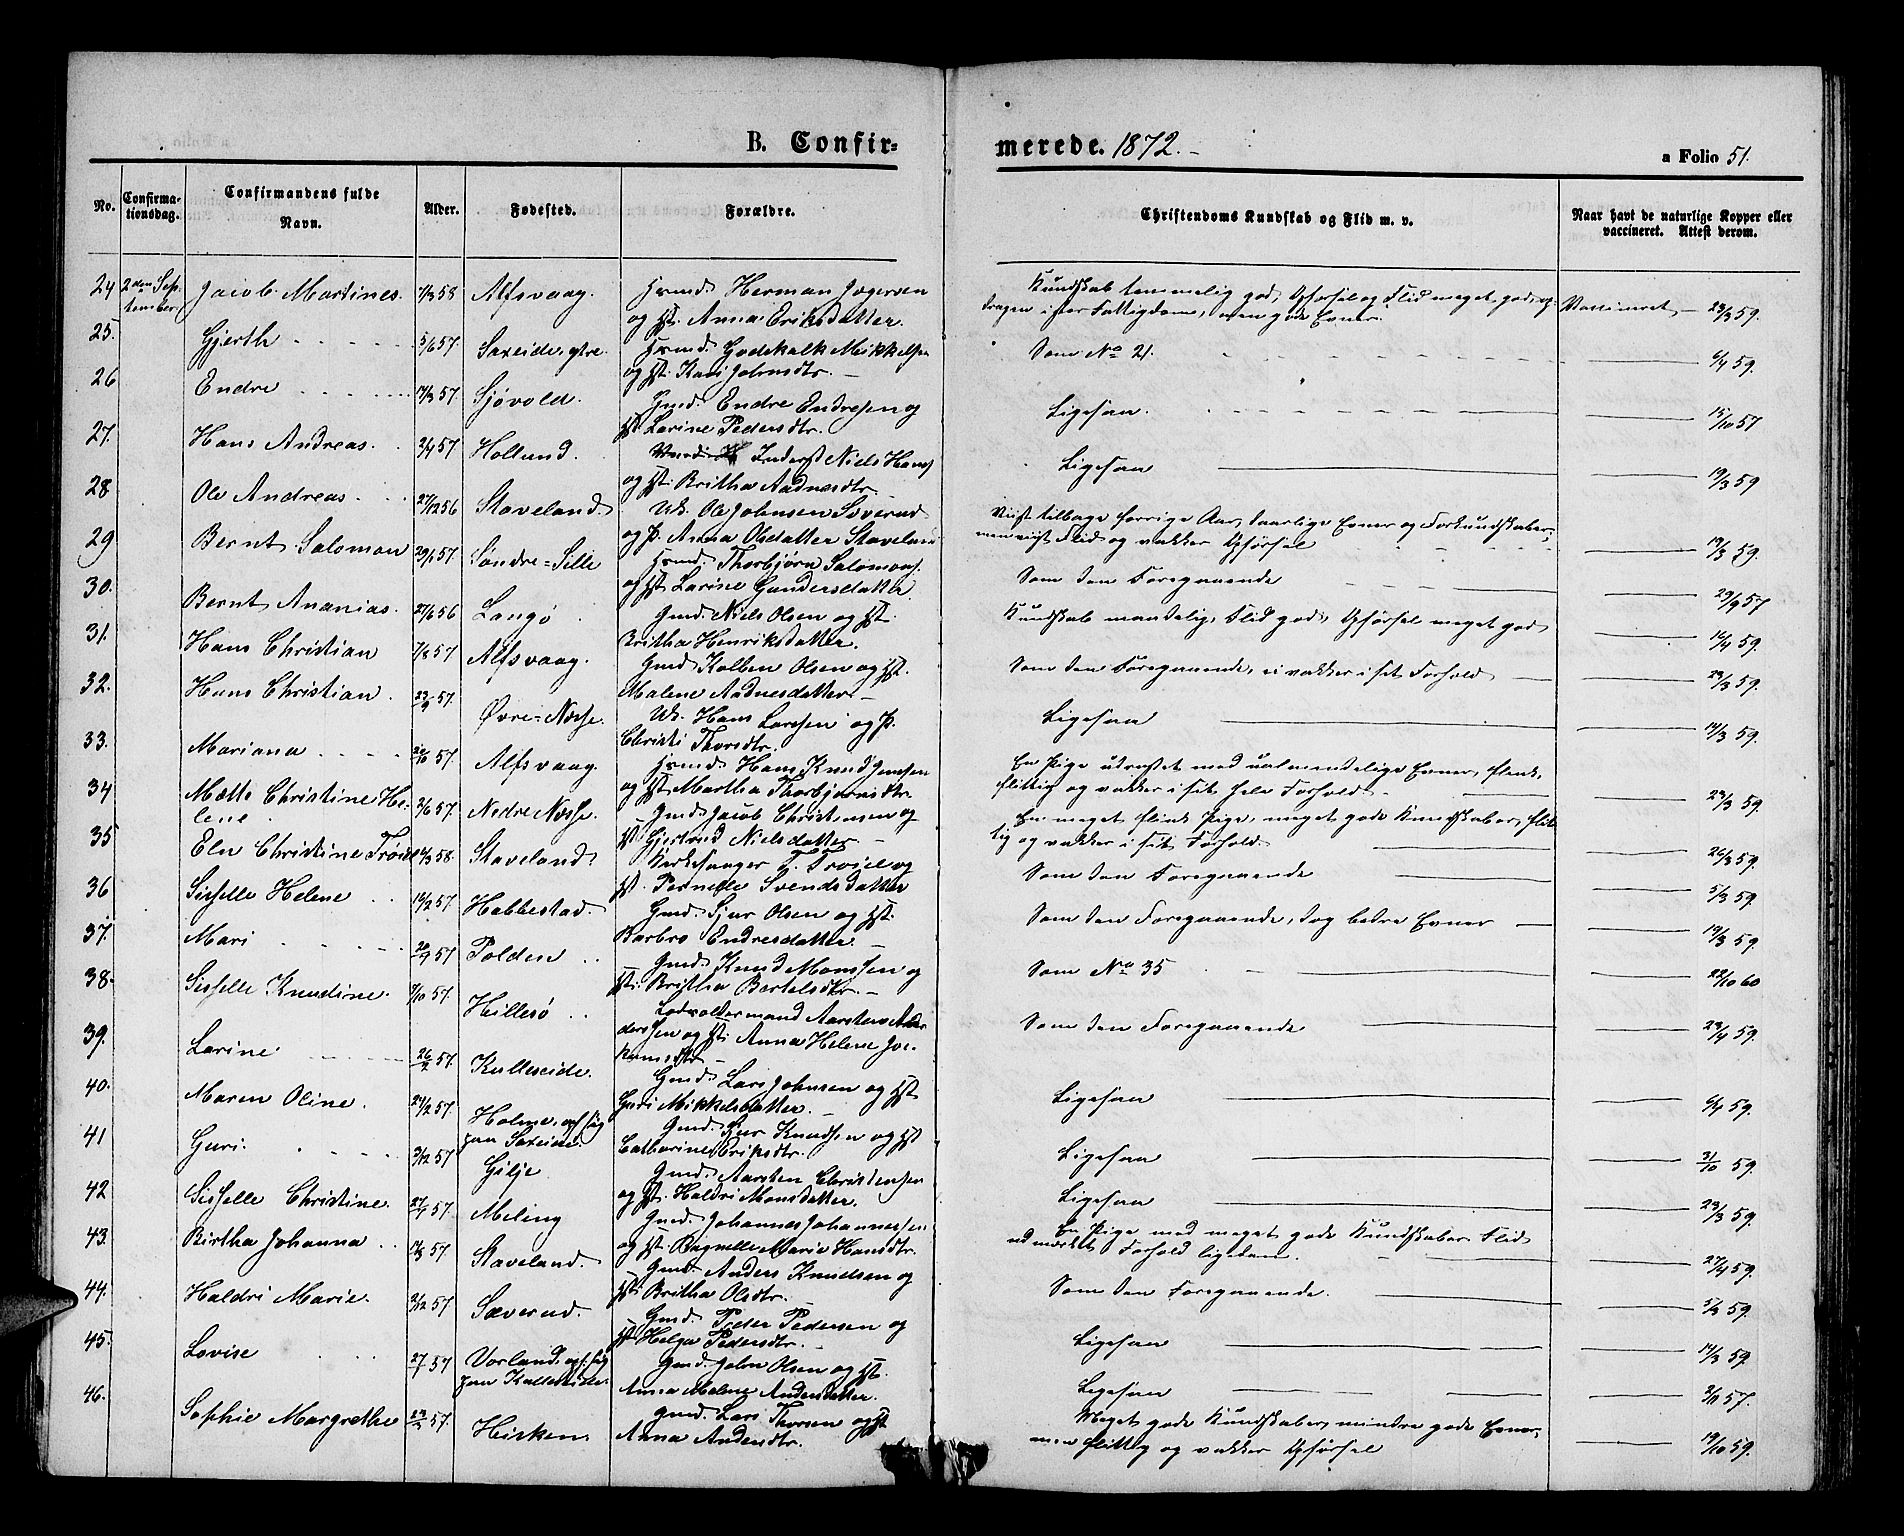 B. Confir-
merede. 1872.
a Folio 51.
No.
Confirma-
tionsdag.
Confirmandens fulde
Navn.
Alder.
Fødested.
Forældre.
Christendoms Kundskab og Flid m. v.
Naar havt de naturlige Kopper eller
vaccineret. Attest derom.
24 2den Sep- Jacob Martines. 7/3 58 Alfsvaag. Herman
tember og Anna Eriksdatter.
Kundskab temmelig god, Opførsel og Flid meget god,
Vaccineret 23/3 59.
25. Gjerth 5/6 57. Saxeide, ytre. Godskalk Mikkelsen
og Kari Johnsdtr.
Som No 21. 6/4 59.
26 Endre 57. Sjøvold. Gmd. Endre Endresen og
Larine Pedersdtr.
Ligesaa. 15/10 57
27. Hans Andreas. 2/4 57 Holland. Niels Hans
og Britha Aadnesdtr.
Ligesaa 19/3 59
28 Ole Andreas 27/12 56 Staveland Ole Johnsen Soverud
og Anna Olsdatter Staveland
tilbage forrige Aar, daarlige Evner og Forkundskaber,
men Flid og vakker Opførsel 19/3 59.
29 Bernt Salomon 29/1 57 Søndre=Selle Thorbjørn Salomons.
og Larine Gundersdatter
Som den Foregaaende 29/9 57
30. Bernt Ananias. 27/6 56 Langø Gmd. Niels Olsen og
Britha Henriksdatter.
Kundskab maadelig, Flid god, Opførsel meget god 59.
31. Hans Christian 7/8 57 Alfsvaag. Gmd Kolben Olsen og
Malene Aadnesdatter
Som den Foregaaende, vakker i sit Forhold 23/3 59.
32. Hans Christian 57. Øvre=Næsse. Hans Larssen og
Christi Thorsdtr.
Ligesaa 59.
33. Mariana 57. Alfsvaag. Hans Knud Jensen
og Martha Thorbjørnsdtr
En Pige udrustet med ualmindelige Evner, flink,
flittig og vakker i sit hele Forhold. 23/3 59.
34 Mette Christine He- 2/6 57. Nedre Næsse. Gmd. Jacob Christensen og
lene. Gjertrud Nielsdatter
En meget flink Pige, meget gode Kundskaber, flit-
tig og vakker i sit Forhold. 26/3 59.
35 Eln Christine Trøiel 58. Staveland Kirkesanger T. Troiel og
Pernelle Svendsdatter
Som den Foregaaende 5/3 59
36 Sisselle Helene 57. Habbestad. Gmd. Sjur Olsen og
Barbro Endresdatter.
Som den Foregaaende, dog bedre Evner 19/3 59.
37. Mari 57 Polden Gmd. Knud Monssen og
Britha Bertelsdtr.
Som No 35 22/10 60
38. Sisselle Knudine. 57. Hillesø Lodsoldermand Aarsten
og Anna Helene
Som den Foregaaende 59.
39. Larine 57. Kulleseide. Gmd. Lars Johnsen og
Guri Mikkelsdatter.
Ligesaa 6/4 59.
40. Maren Oline. 24/2 57. Holme, Gmd. Knudsen og
paa Saxeide. Catharine Eriksdtr.
Ligesaa 31/10 59.
41 Guri. 57 Gilje Gmd. Aarsten Christensen
og Haldri Monsdatter.
Ligesaa 23/3 59.
42 Sisselle Christine. 57. Meling Gmd. Johannes Johannessen
og Ragnelle Marie Hansdtr.
En Pige med meget gode Kundskaber, Flid
udmærket, Forhold ligedan. 27/4 59.
43. Birtha Johanna 57 Staveland. Gmd. Anders Knudsen og
Britha Olsdtr.
Som den Foregaaende. 59.
44. Haldri Marie. 57 Sæverud. Gmd. Peder Pedersen og
Helga Pedersdtr.
Ligesaa 59.
45. Lovise 57 Vorland, Gmd. John Olsen og
paa Kulleseide. Anna Malene Andersdatter.
Ligesaa 57.
46. Sophie Margrethe 57. Hisken. Gmd. Lars Thorsen og
Anna Andersdtr.
Meget gode Kundskaber, mindre gode Evner,
men flittig og vakker Opførsel 19/10 59.